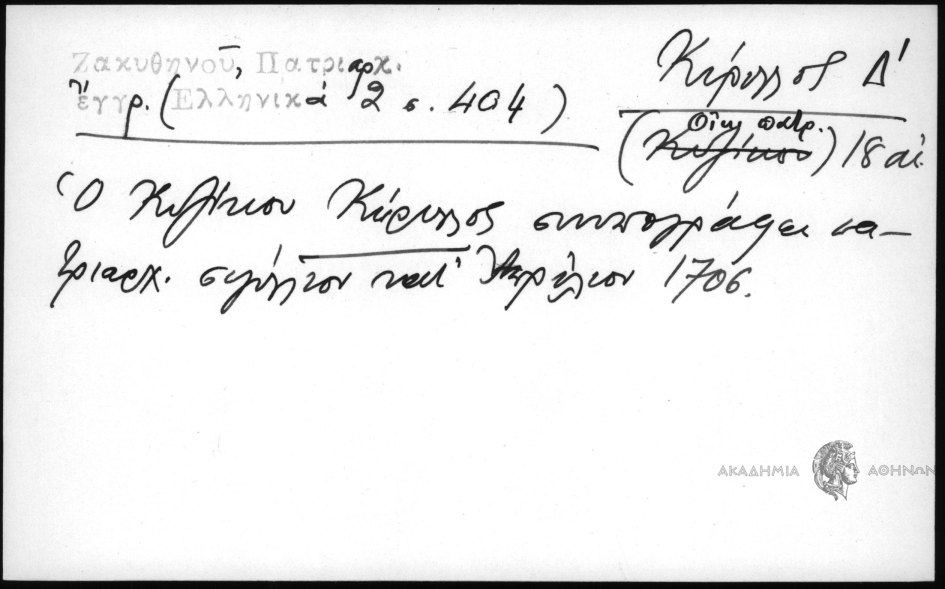 Ζακυθηνοῦ, Πατριαρχ.
ἔγγρ. (Ἑλληνικά 2 σ. 404)
Κύριλλος Δ΄
(Οἰκ. πατρ.
Κυζίκου) 18 αἰ.
Ὁ Κυζίκου Κύριλλος συνυπογράφει πα-
τριαρχ. σιγίλλιον κατ' Ἀπρίλιον 1706.
ΑΚΑΔΗΜΙΑ ΑΘΗΝΩΝ